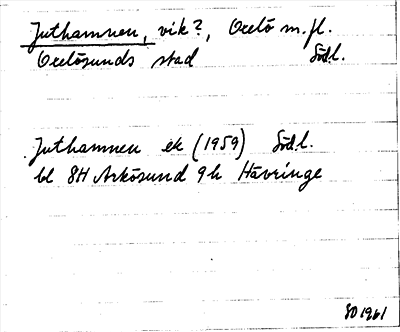 Juthamnen, vik?, Oxelö m.fl.
Oxelösunds stad Södl.
Juthamnen ek (1959) Södl.
bl 8H Arkösund 9h Hävringe
SO 1961